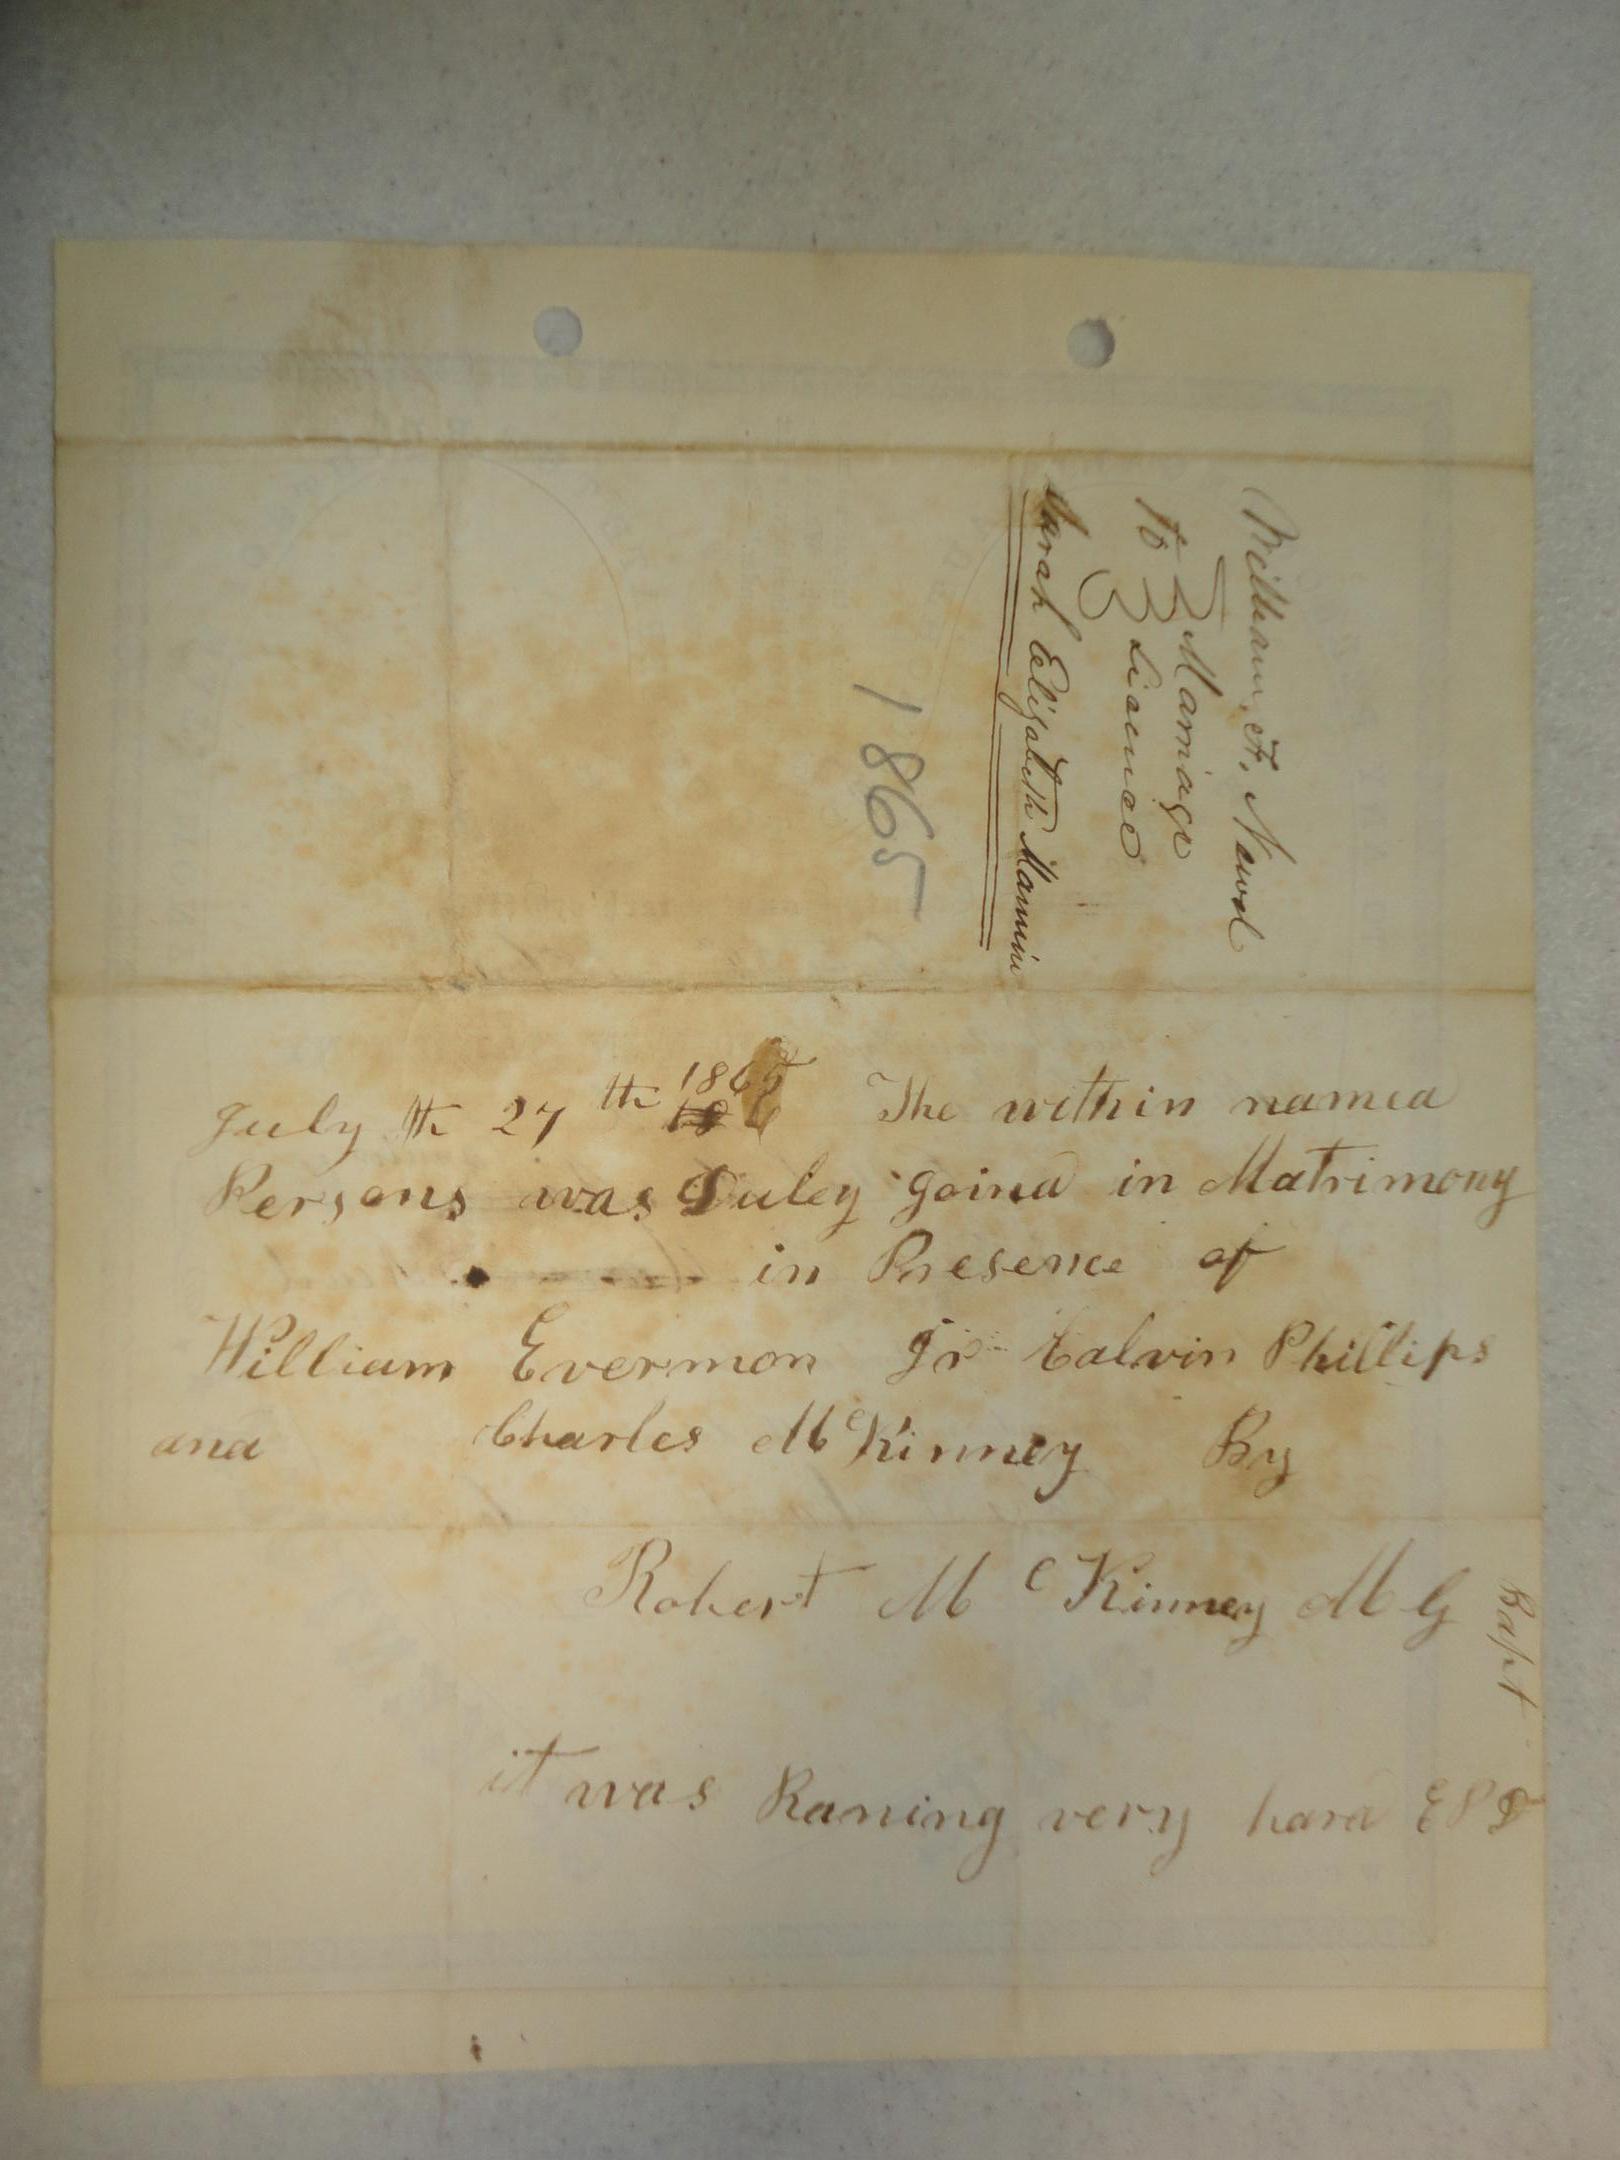 William F. Newel
to } Marriage
Licence
Sarah Elizabeth Mannin
1865
July th 27th 1865 The within named
Persons was Duley Joind in Matrimony
in Presence of
William Evermon Jr Calvin Phillips
and Charles McKinney By
Robert McKinney M G
Bapt
it was Raning very hard